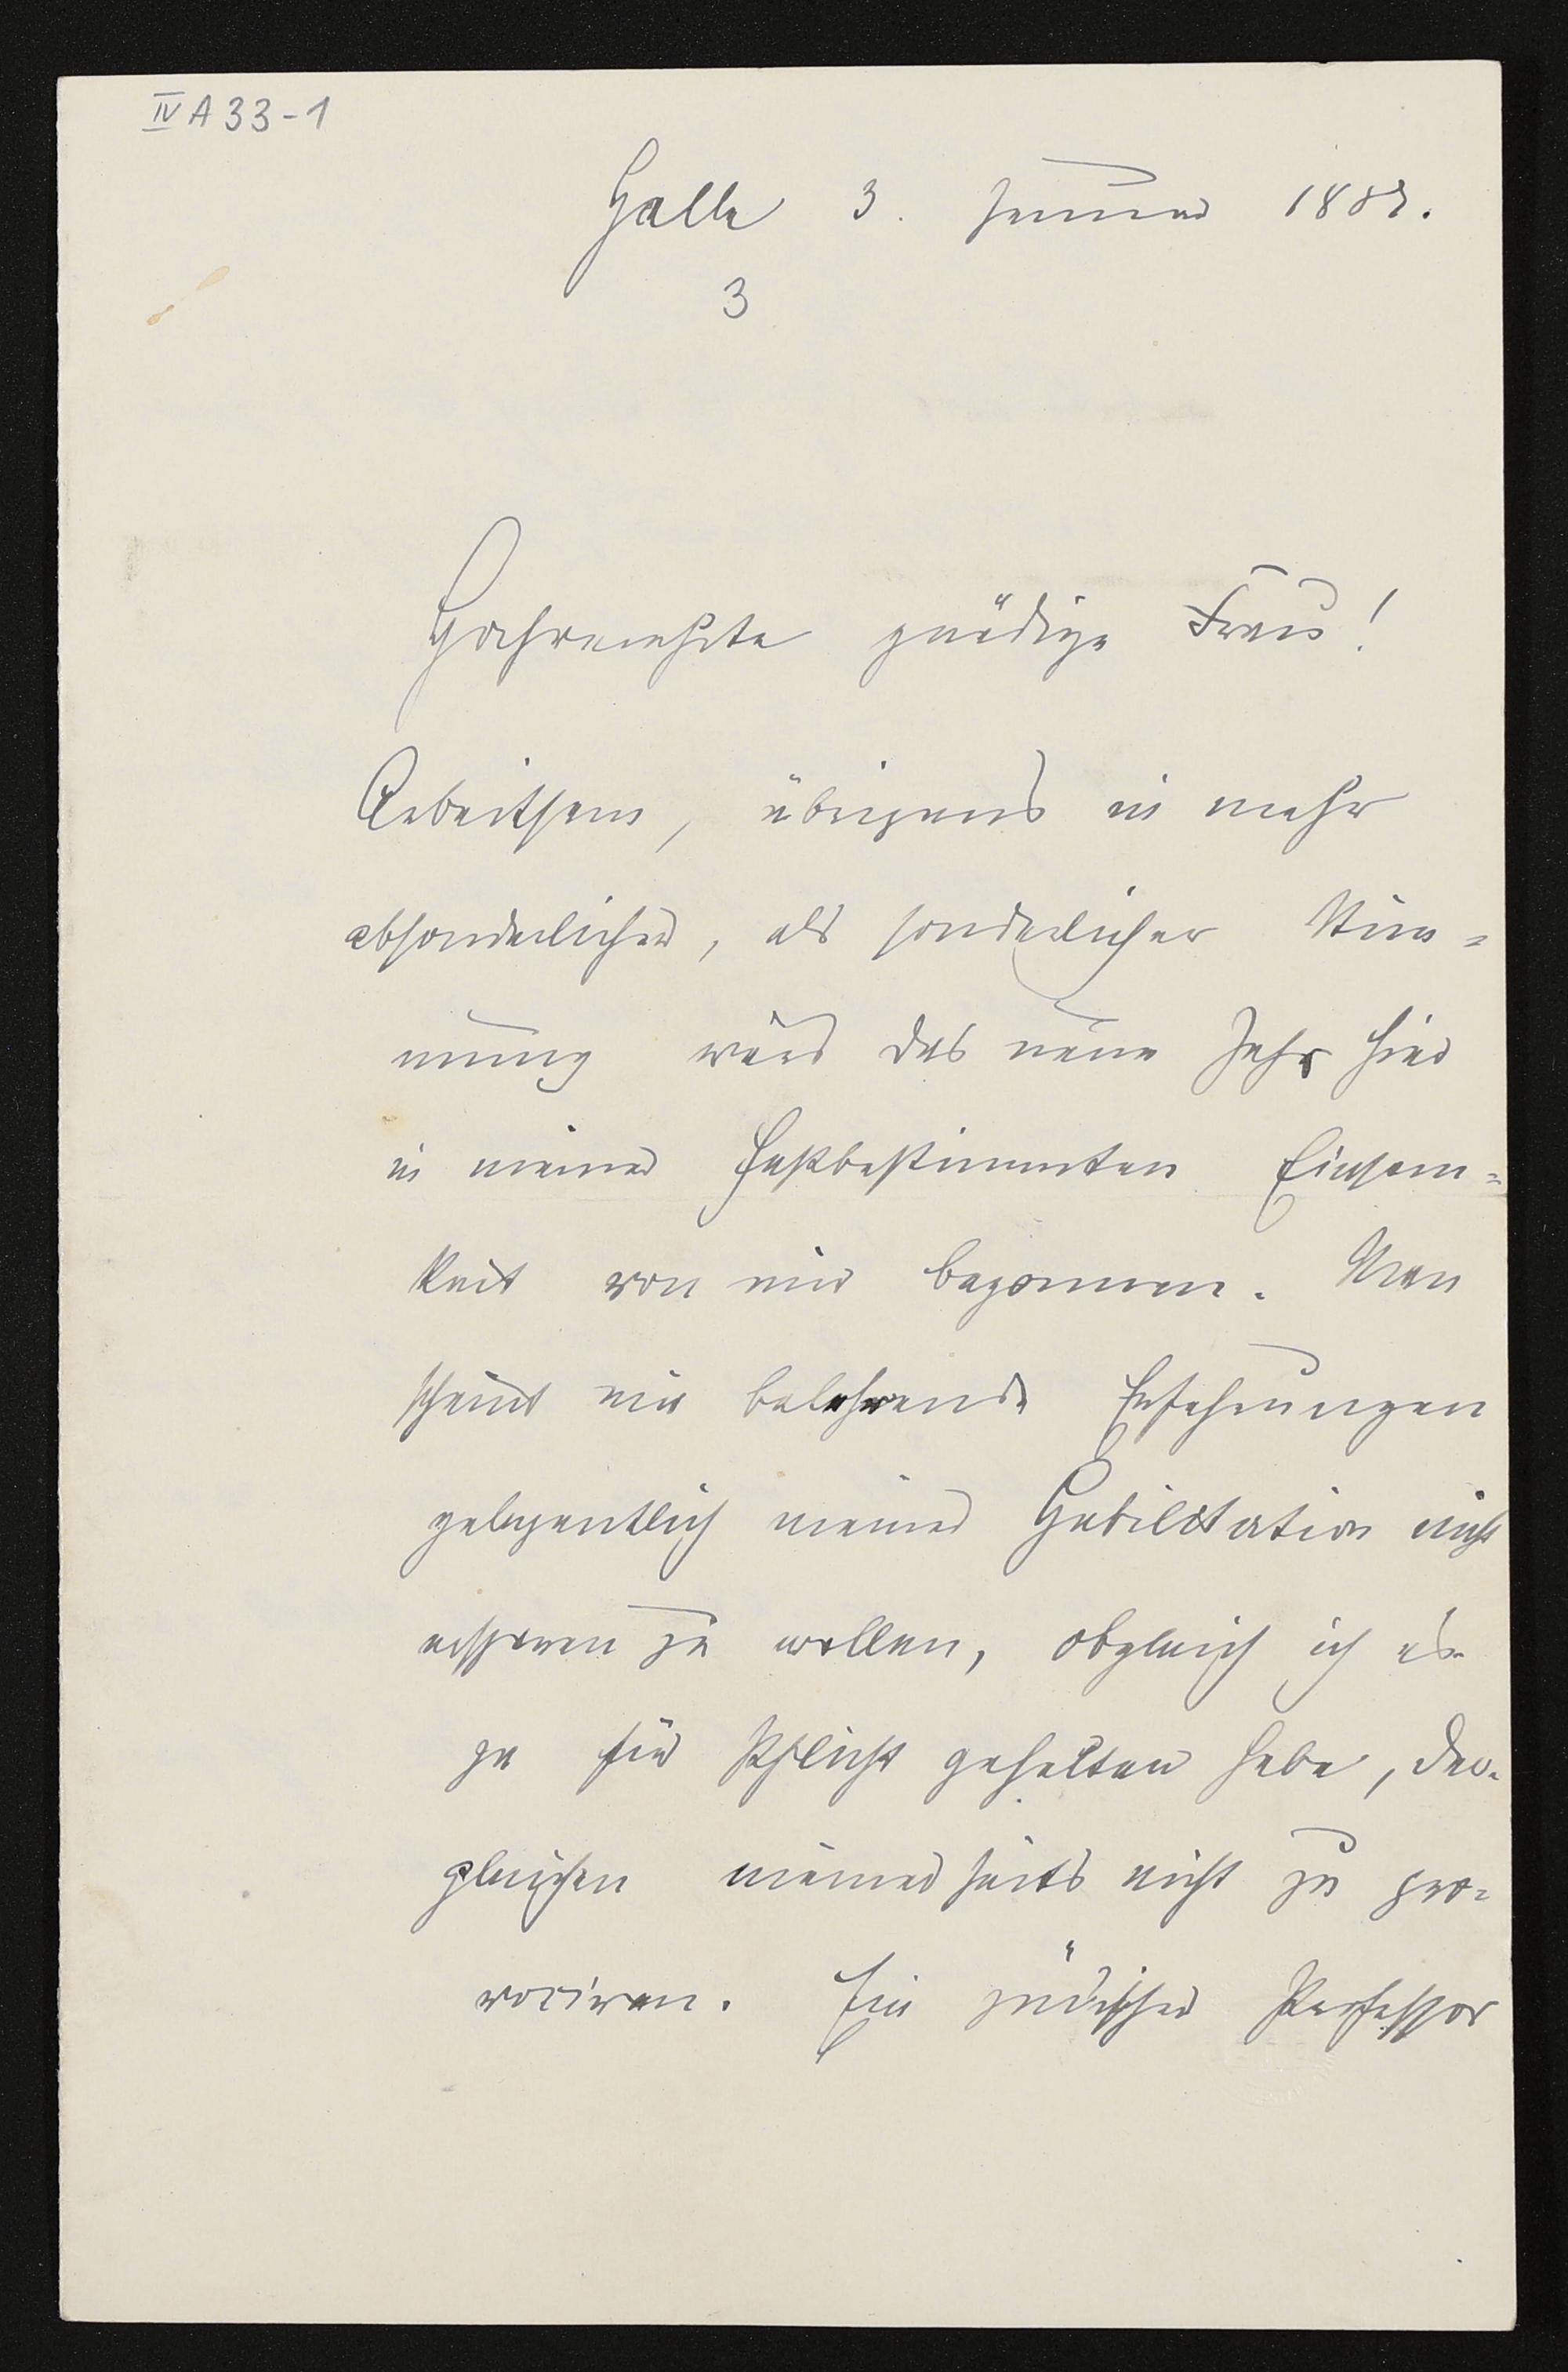 IV A 33-1
Halle 3. Januar 1882.
3
Hochverehrte gnädige Frau!
Arbeitsam, übrigens in mehr
absonderlicher, als sonderlicher Stim=
mung wird das neue Jahr hier
in meiner festbestimmten Einsam=
keit von mir begonnen. Man
scheint mir belehrende Erfahrungen
gelegentlich meiner Habilitation nicht
ersparen zu wollen, obgleich ich es
ja für Pflicht gehalten habe, der-
gleichen meinerseits nicht zu pro=
vociren. Ein jüdischer Professor